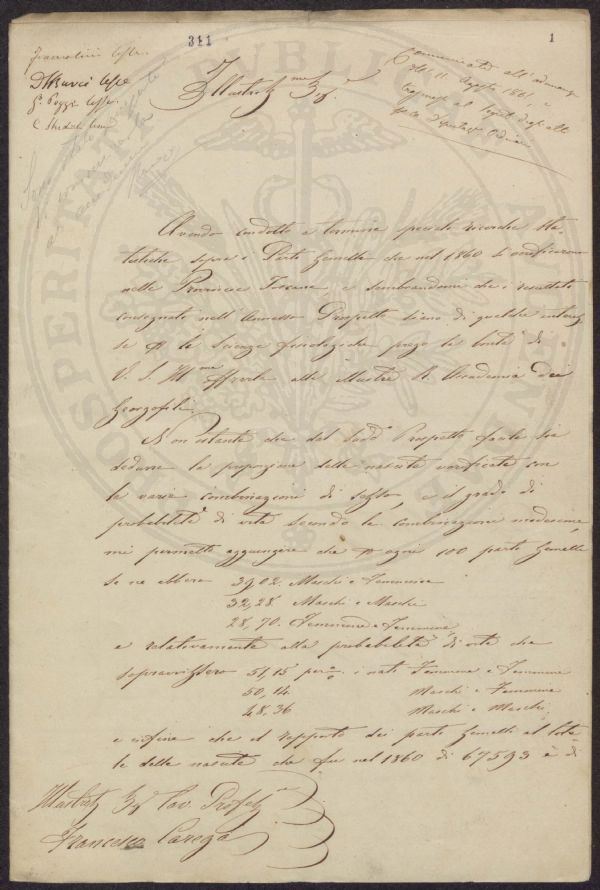 311
1
Illustriss.mo Sig.r
Avendo condotto a termine piccole ricerche Sta-
tistiche sopra i Parti Gemelli che nel 1860 si verificarono
nelle Provincie Toscane e sembrandomi che i resultati
consegnati nell'annesso Prospetto siano di qualche interes
se p le Scienze fisiologiche prego la bontà di
V. S. Ill.ma offrirle alla Illustre R. Accademia dei
Georgofili.
Non ostante che dal sudd.o Prospetto facile sia
dedurre la proporzione delle nascite verificate con
la varia combinazione di sesso, e il grado di
probabilità di vita secondo le combinazioni medesime,
mi permetto aggiungere che p ogni 100 parti Gemelli
se ne ebbero 39,02. Maschi e Femmine
32,28. Maschi e Maschi
28,70. Femmine e Femmine,
e relativamente alla probabilità di vita che
sopravvissero 51,15 per % i nati Femmine e Femmine
50,14 Maschi e Femmine
48,36 Maschi e Maschi,
e infine che il rapporto dei parti Gemelli al tota-
le delle nascite che fu nel 1860 di 67593 è di
Illustriss Sig Cav. Profess
Francesco Carega
PROSPERITATI PUBLICAE AUGENDAE